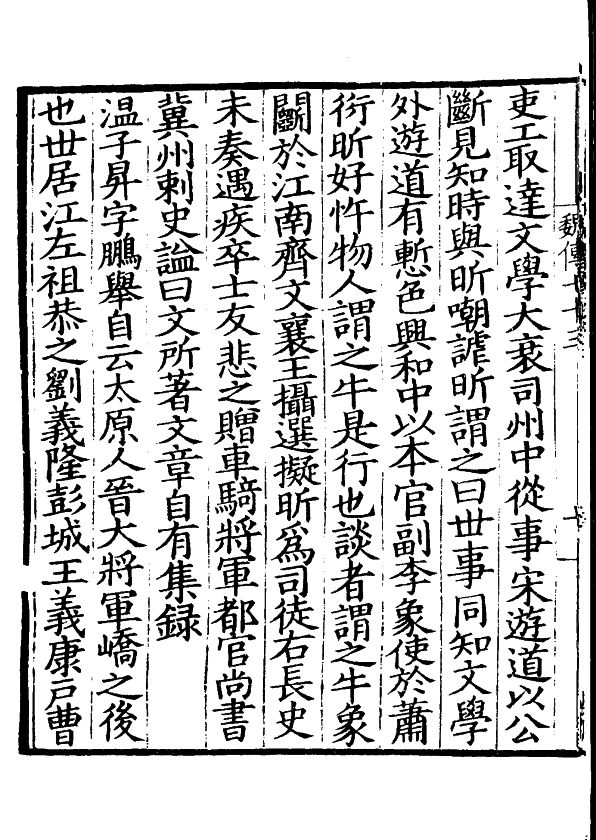 吏工取達文學大衰司州中從事宋遊道以公
斷見知時與昕嘲謔昕謂之曰世事同知文學
外遊道有慙色興和中以本官副李象使於蕭
衍昕好忤物人謂之牛是行也談者謂之牛象
鬭於江南齊文襄王攝選擬昕爲司徒右長史
未奏遇疾卒士友悲之贈車騎將軍都官尚書
冀州刺史謚曰文所著文章自有集録
温子昇字鵬舉自云太原人晉大將軍嶠之後
也世居江左祖恭之劉義隆彭城王義康戸曹
魏傳七十三